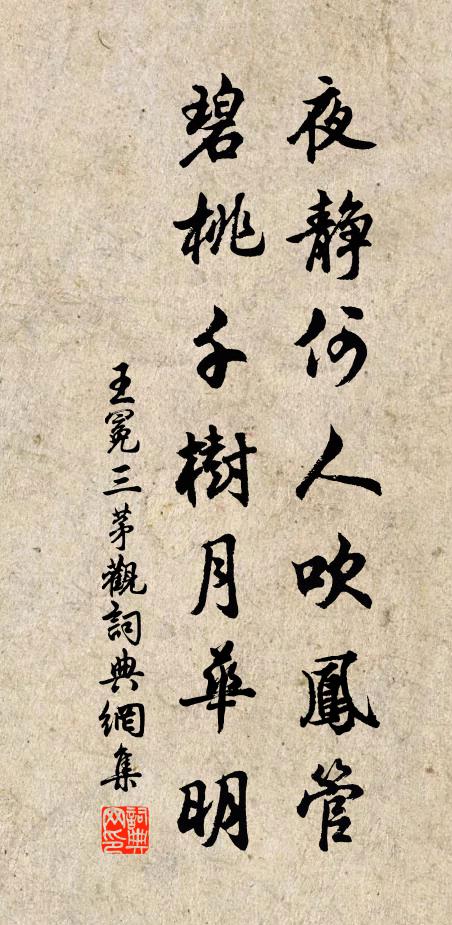 夜静何人吹鳳管
碧桃千樹月華明
王冕三茅觀詞典網集
詞典网印